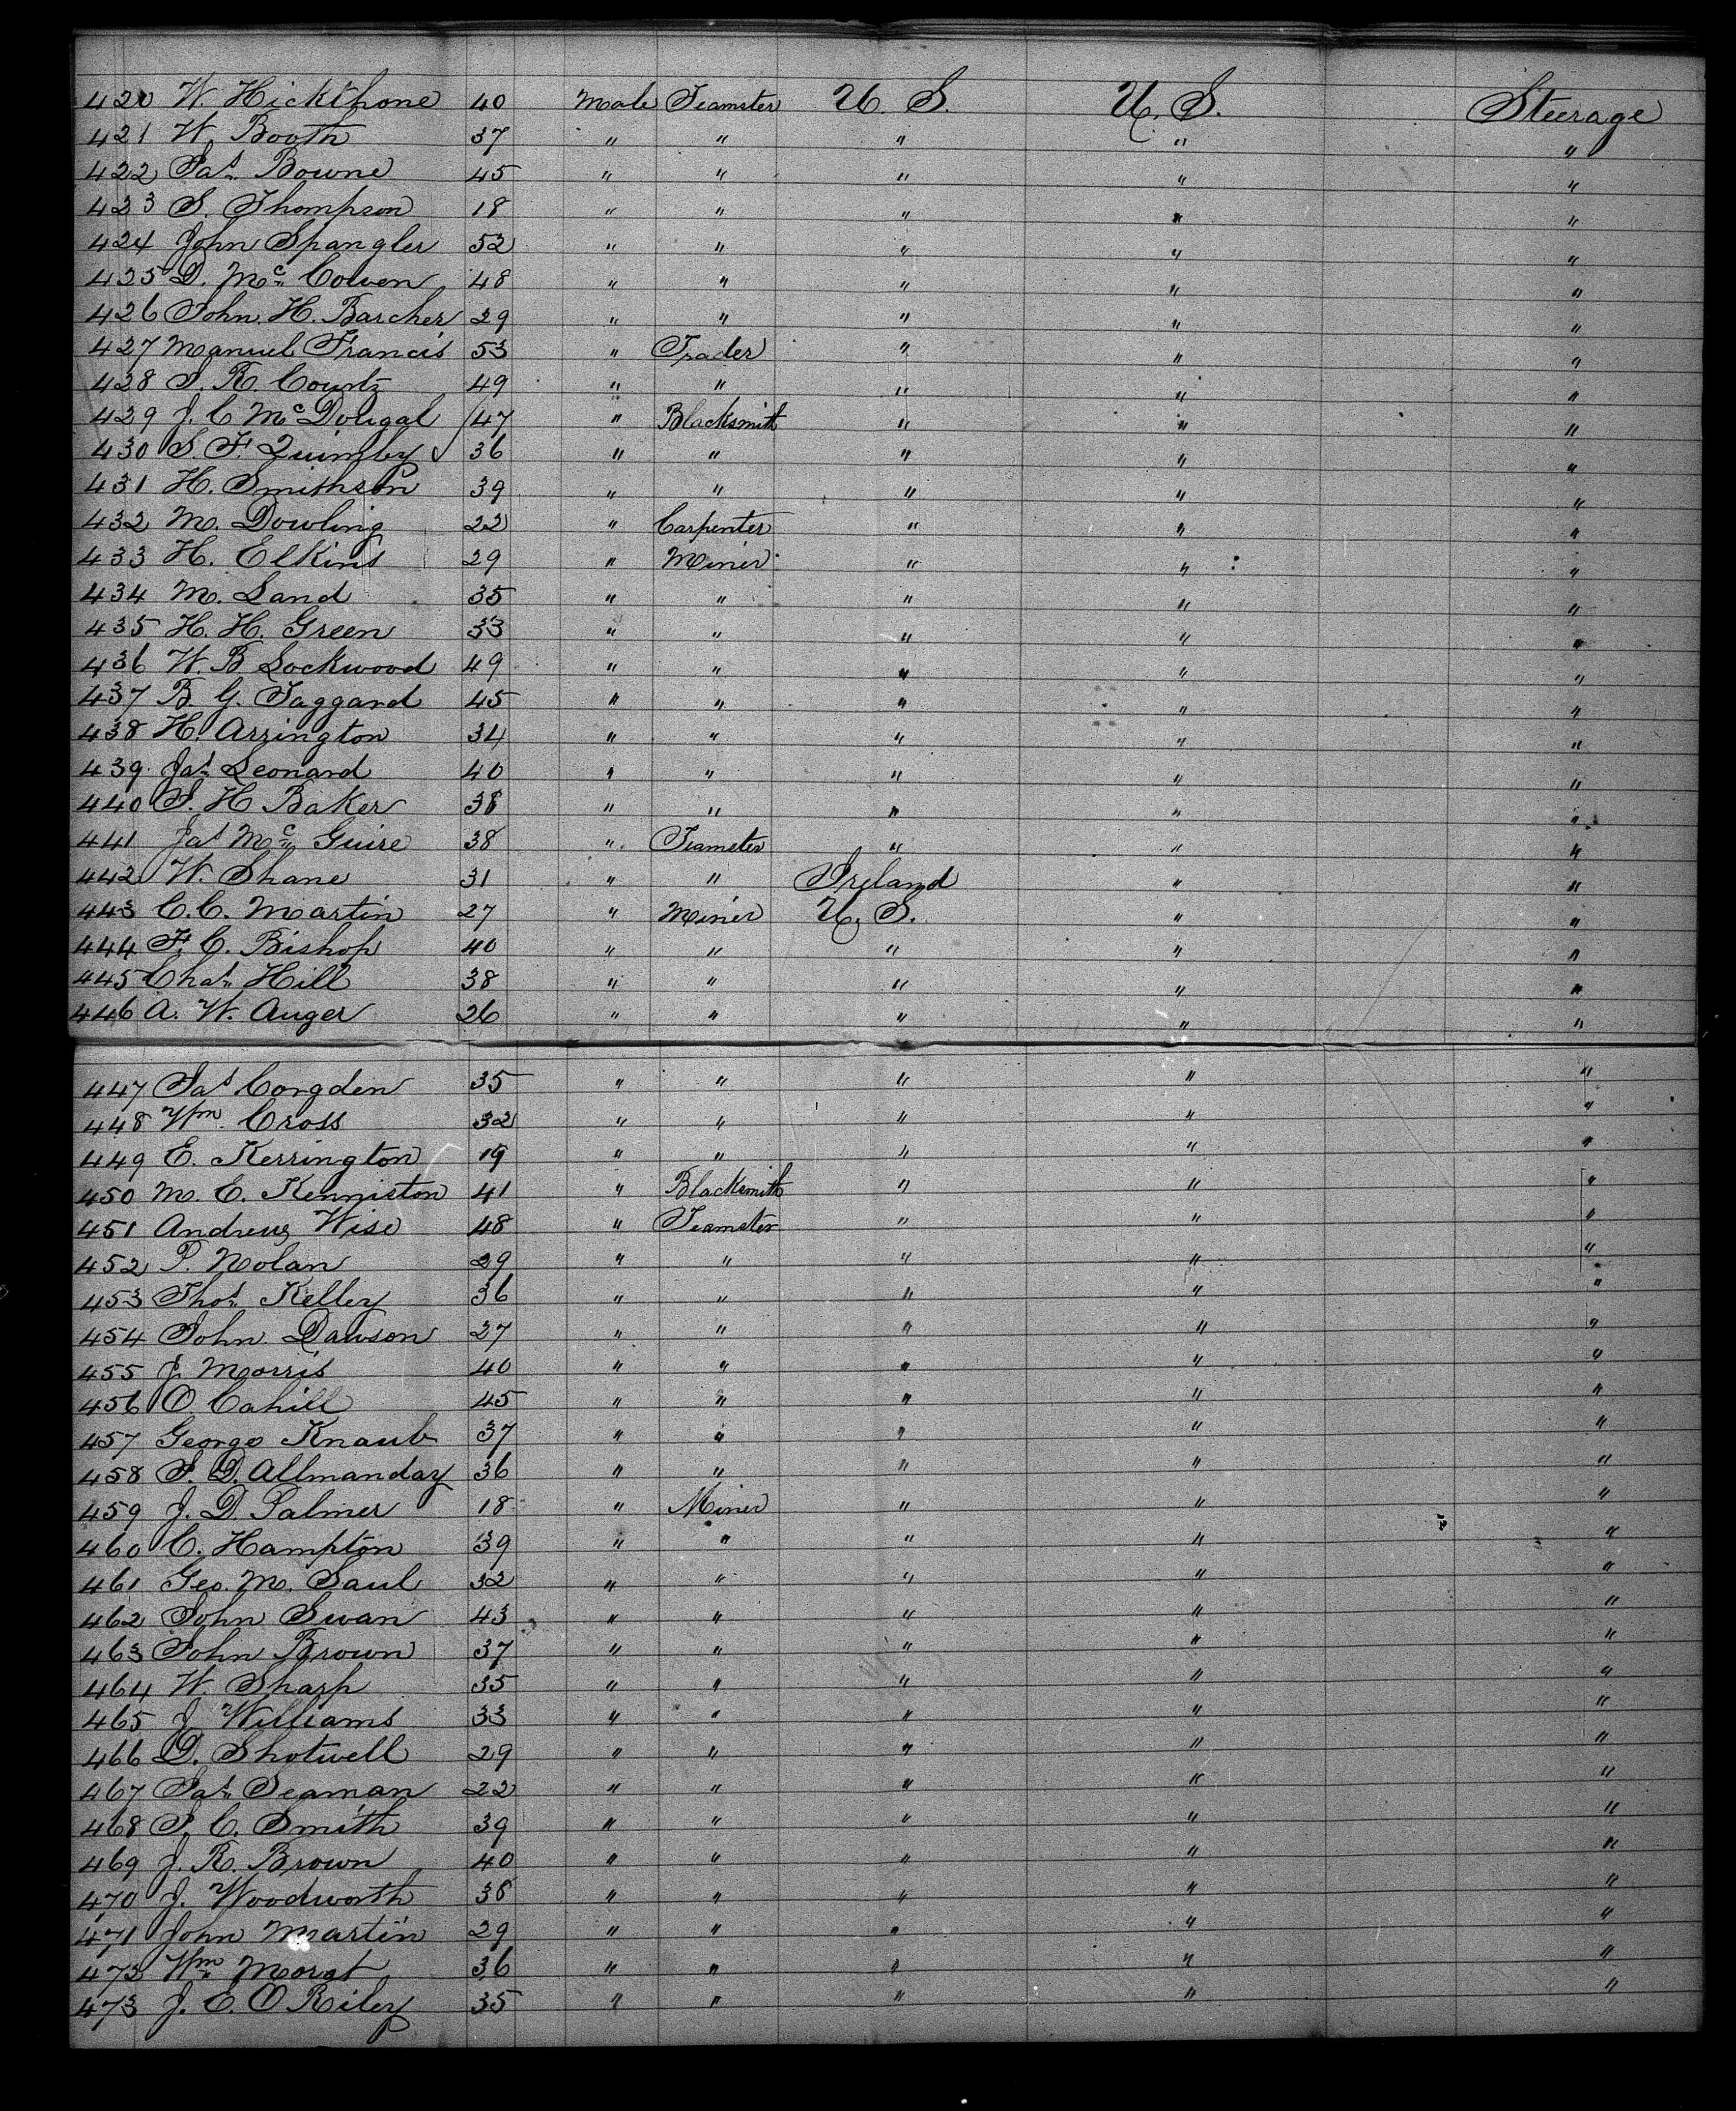 420 W. Hickthone 40 Male Teamster U. S. U. S. Steerage
421 W. Booth 37 " " " " "
422 Jas. Bowne 45 " " " " "
423 S. Thompson 18 " " " " "
424 John Spangler 52 " " " " "
425 D. Mc Cowen 48 " " " " "
426 John. H. Barcher 29 " " " " "
427 Manuel Francis 53 " Trader " " "
428 S. R. Courtz 49 " " " " "
429 J. C Mc Dougal 47 " Blacksmith " " "
430 S. F. Quimby 36 " " " " "
431 H. Smithson 39 " " " " "
432 M. Dowling 22 " Carpenter " " "
433 H. Elkins 29 " Miner " " "
434 M. Land 35 " " " " "
435 H. H. Green 33 " " " " "
436 W. B. Lockwood 49 " " " " "
437 B. G. Taggard 45 " " " " "
438 H. Arrington 34 " " " " "
439 Jas. Leonard 40 " " " " "
440 S. H Baker 38 " " " " "
441 Jas Mc Guire 38 " Teamster " " "
442 W. Shane 31 " " Ireland " "
443 C. C. Martin 27 " Miner U. S. " "
444 F. C. Bishop 40 " " " " "
445 Chas. Hill 38 " " " " "
446 A. W. Auger 26 " " " " "
447 Jas Congden 35 " " " " "
448 Wm. Cross 32 " " " " "
449 E. Kerrington 19 " " " " "
450 M. E. Kenniston 41 " Blacksmith " " "
451 Andrew Wise 48 " Teamster " " "
452 P. Nolan 29 " " " " "
453 Thos. Kelley 36 " " " " "
454 John Dawson 27 " " " " "
455 J. Morris 40 " " " " "
456 O Cahill 45 " " " " "
457 George Knaub 37 " " " " "
458 S. D. Allmanday 36 " " " " "
459 J. D. Palmer 18 " Miner " " "
460 C. Hampton 39 " " " " "
461 Geo. M. Saul 32 " " " " "
462 John Swan 43 " " " " "
463 John Brown 37 " " " " "
464 W. Sharp 35 " " " " "
465 J Williams 33 " " " " "
466 D. Shotwell 29 " " " " "
467 Jas. Seaman 22 " " " " "
468 S. C. Smith 39 " " " " "
469 J. R. Brown 40 " " " " "
470 J. Woodworth 38 " " " " "
471 John Martin 29 " " " " "
472 Wm. Morat 36 " " " " "
473 J. E. O Riley 35 " " " " "